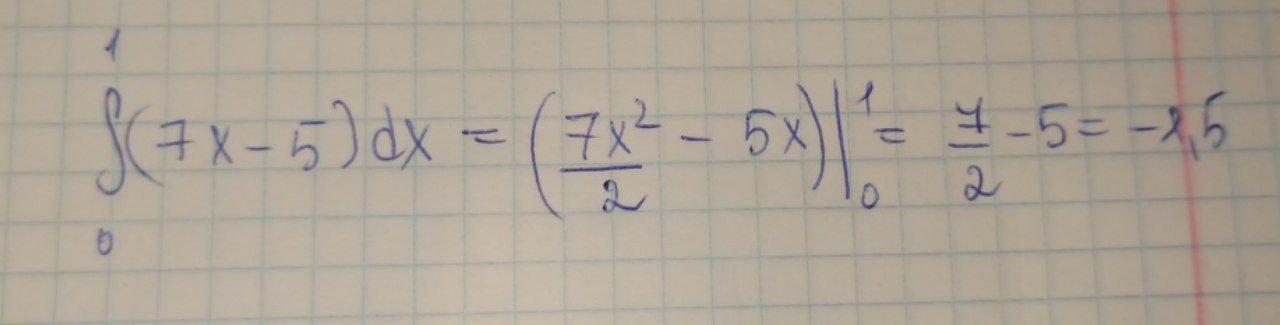 ∫₀¹(7x-5)dx = (7x²/2 - 5x)|₀¹ = 7/2 - 5 = -1,5